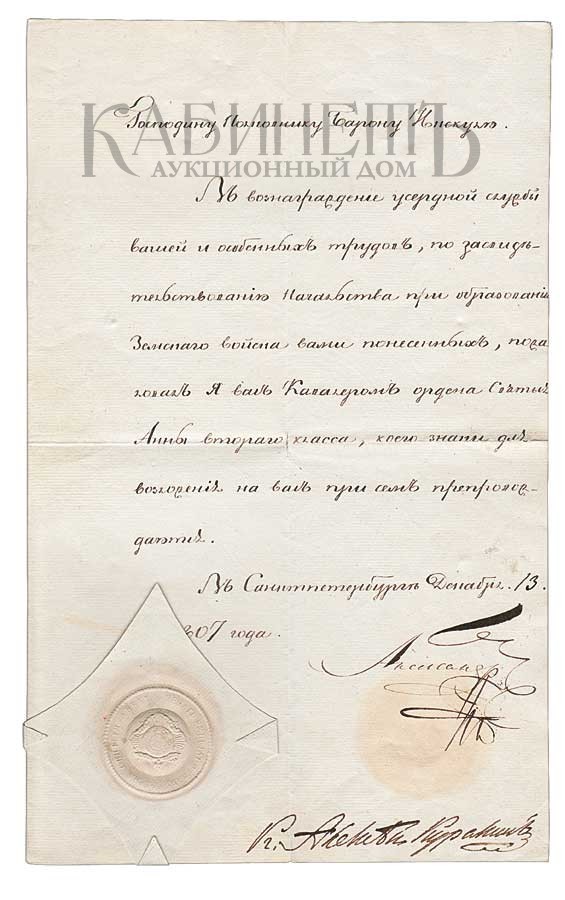 КАБИНЕТЪ
АУКЦИОННЫЙ ДОМ
Господину Полковнику Барону Икскулю.
Въ вознаграждение усердной службы
вашей и особенныхъ трудовъ, по засвидѣ-
тельствованию Начальства при образовании
Земскаго войска вами понесенныхъ, пожа
ловалъ Я васъ Кавалеромъ ордена Святыя
Анны втораго класса, коего знаки для
возложения на васъ при семъ препровож-
даются.
Въ Санктпетербургѣ Декабря 13.
807 года.
Александръ
Кн. Алексѣй Куракинъ